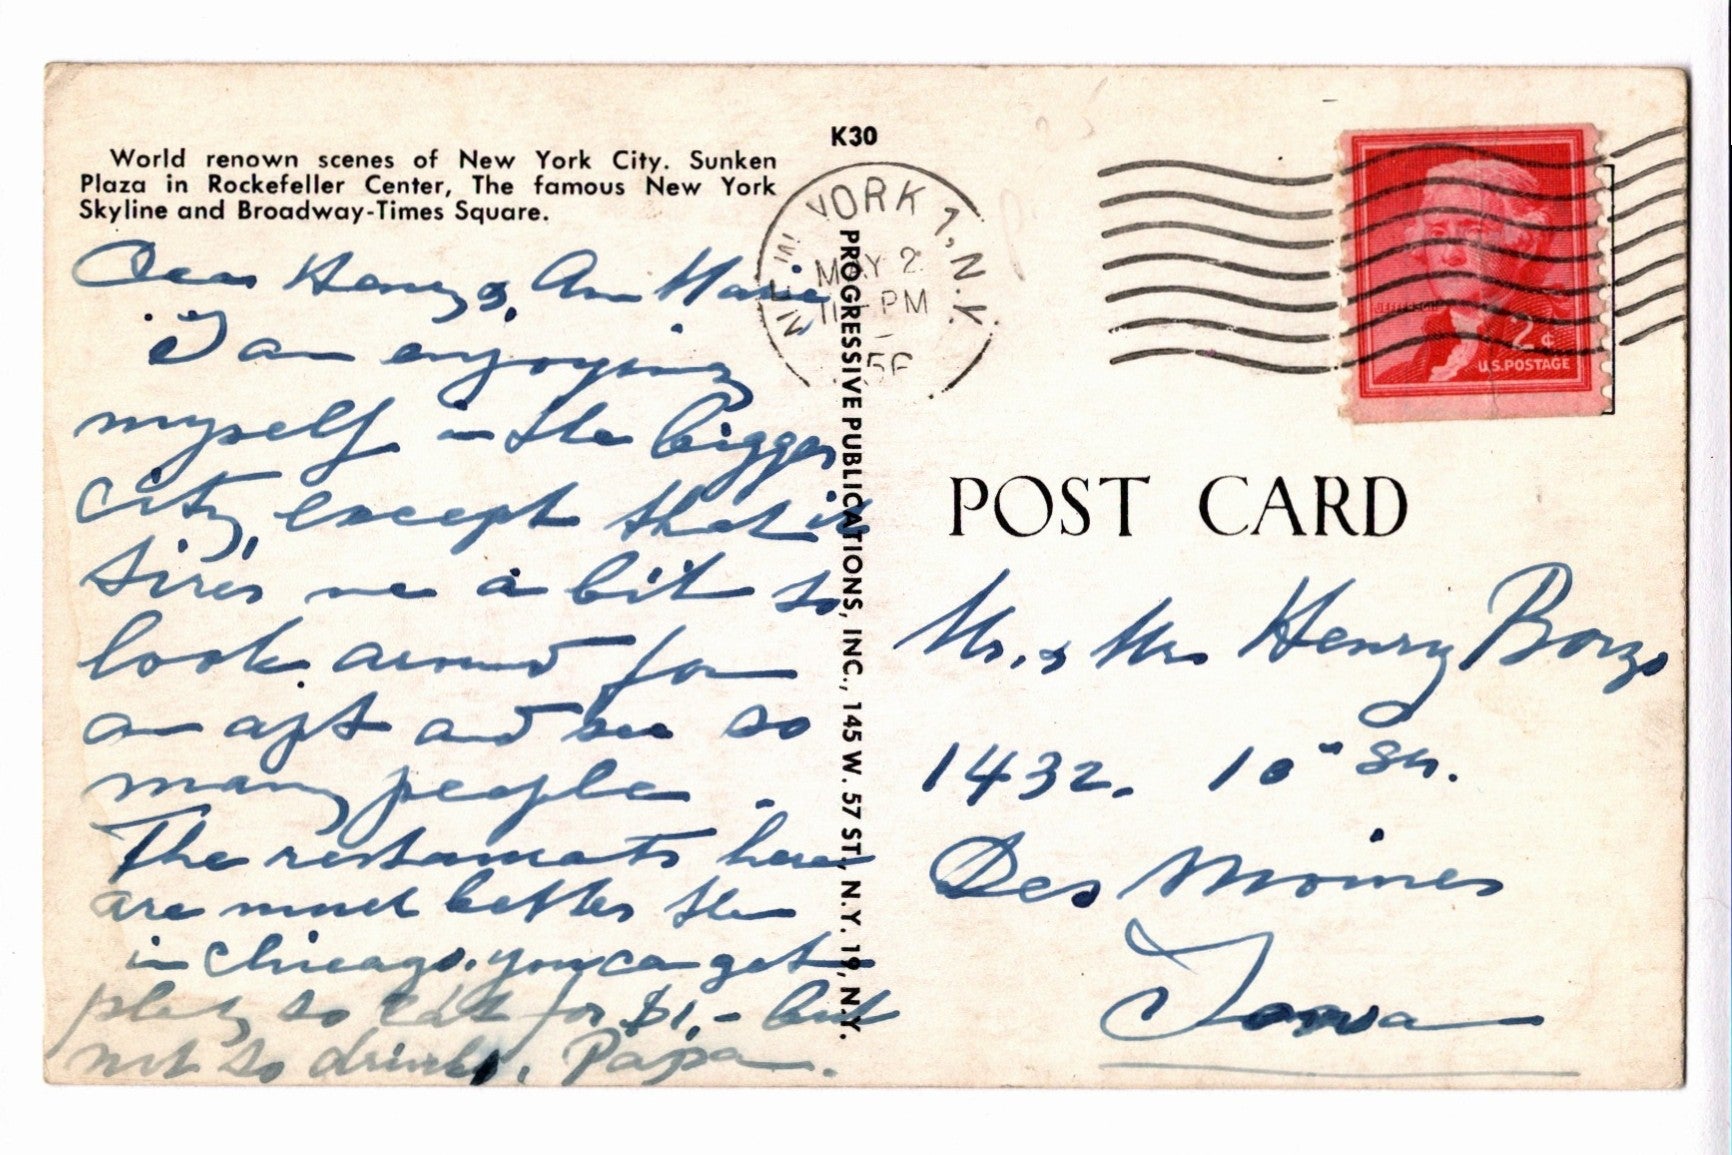 World renown scenes of New York City. Sunken
Plaza in Rockefeller Center, The famous New York
Skyline and Broadway-Times Square.
K30
Dear Henry &, Ann Marie
I am enjoying
myself in the bigger
city, except that it
tires me a bit to
look around for
an apt and see so
many people.
The restaurants here
are much better then
in Chicago. You can get
plenty to eat for $1,- but
not to drink. Papa.
PROGRESSIVE PUBLICATIONS, INC., 145 W. 57 ST., N.Y. 19, N.Y.
NEW YORK 1, N.Y.
MAY 2
11 PM
56
JEFFERSON
2¢
U.S. POSTAGE
POST CARD
Mr. & Mrs Henry Borzo
1432. 10" St.
Des Moines
Iowa